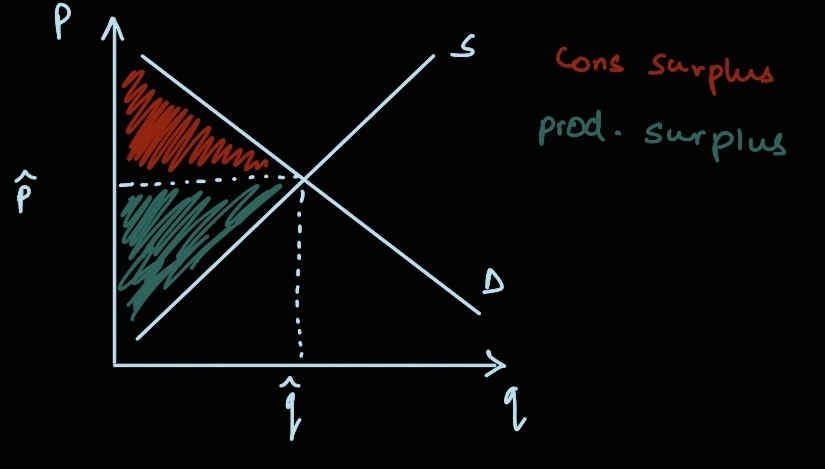 P
S
Cons surplus
prod. surplus
p̂
D
q̂
q